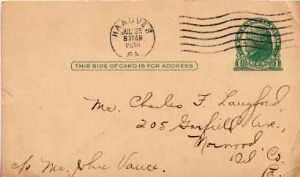 HANOVER
JUL 26
8 30 AM
PA.
THIS SIDE OF CARD IS FOR ADDRESS
Mr. Charles F. Langford,
205 Garfield Ave.,
Norwood,
Del. Co.
Pa.
c/o Mr. John Vance.